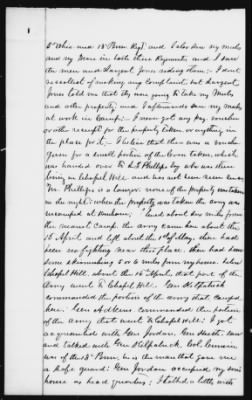 5" Ohio and 18" Penn Regt and I also saw my mules
and my Mare in both these Regiments and I saw
the men and Sargent Jones riding them:- I dont
recollect of making any complaint, but Sargent
Jones told me that they were going to take my Mules
and other property and I afterwards saw my mules
at work in Camp:- I never got any pay, voucher
or other receipt for the property taken or anything in
the place for it:- I believe that there was a voucher
given for a small portion of the Corn taken, which
was handed over to S.F. Phillips by who was then
living in Chapel Hill and has not been seen since
Mr Phillips is a lawyer none of the property was taken
in the night: when the property was taken the army was
encamped at Durham; and about six miles from
the nearest Camp. the army came here about the
15 April and left about the 1st of May. there had
been no fighting near this place. there had been
some skirmishing 5 or 6 miles from my house, below
Chapel Hill about the 15" April, that part of the
Army went to Chapel Hill. Gen Kilpatrick
commanded the portion of the army that camped
here. Gen Atkins commanded the portion
of the army that went to Chapel Hill: I got
acquainted with Gen Jordan, Gen Scott: saw
and talked with Gen Kilpatrick, Col
was of the 18" Penn, he is the man that gave me
a Safe guard: Gen Jordan occupied my own
house as head quarters; I talked a little with